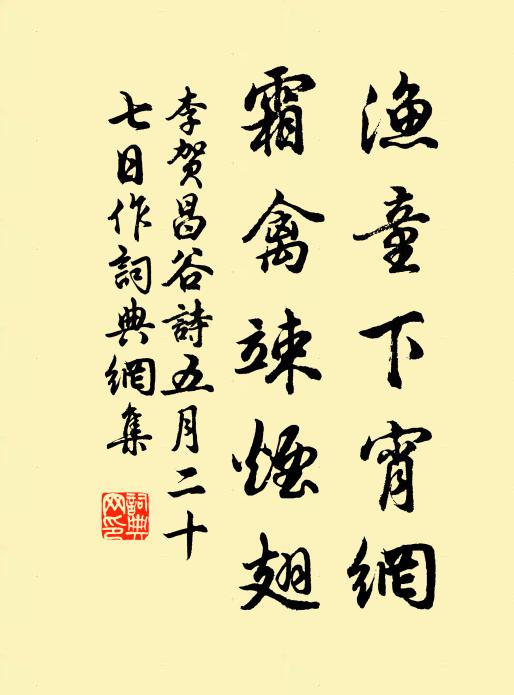 漁童下宵網
霜禽竦煙翅
李賀昌谷詩五月二十
七日作詞典網集
詞典网印